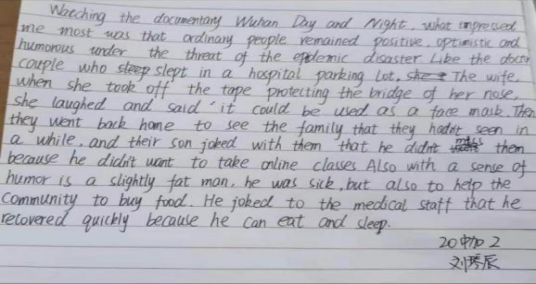 Watching the documentary Wuhan Day and Night, what impressed
me most was that ordinary people remained positive, optimistic and
humorous under the threat of the epidemic disaster. Like the doctor
couple who sleep slept in a hospital parking lot, she The wife,
when she took off the tape protecting the bridge of her nose,
she laughed and said "it could be used as a face mask. Then
they went back home to see the family that they hadn't seen in
a while, and their son joked with them that he didn't miss them
because he didn't want to take online classes Also with a sense of
humor is a slightly fat man, he was sick, but also to help the
community to buy food. He joked to the medical staff that he
recovered quickly because he can eat and sleep.
20中加2